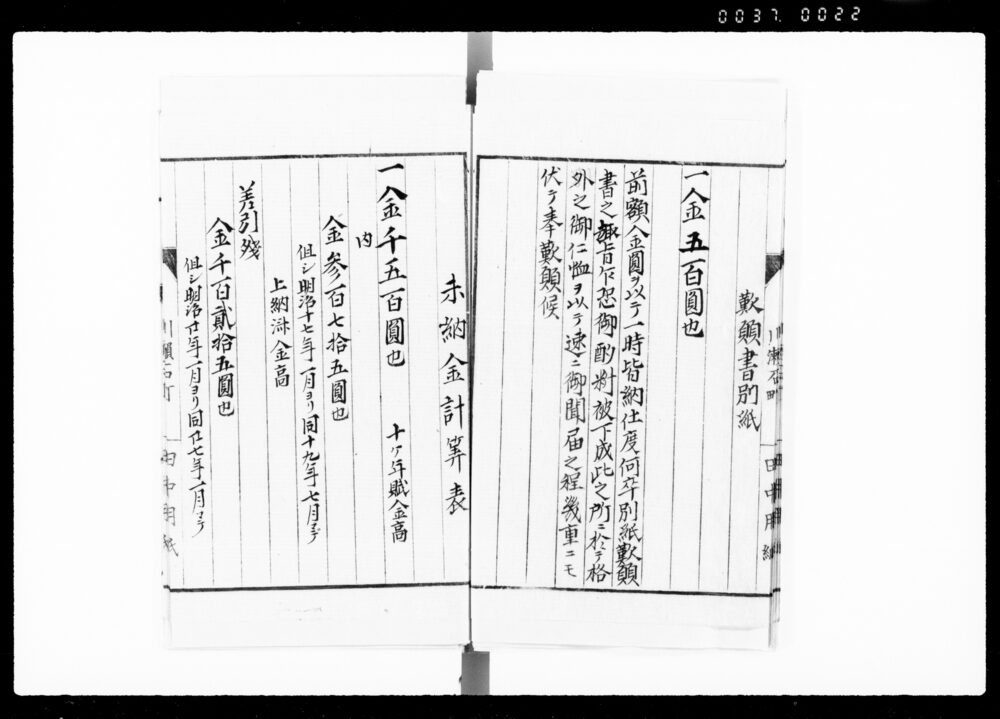 0037. 0022
歎願書別紙
一金五百圓也
前額金圓ヲ以テ一時皆納仕度何卒別紙歎願
書之趣旨乍恐御酌料被下成此之所ニ於テ格
外之御仁恤ヲ以テ速ニ御聞届之程幾重ニモ
伏テ奉歎願候
未納金計算表
一金千五百圓也 十ヶ年賦金高
内
金参百七拾五圓也
但シ明治十七年一月ヨリ同十九年七月マデ
上納済金高
差引残
金千百貳拾五圓也
但シ明治廿年一月ヨリ同廿七年一月マデ
田中用紙